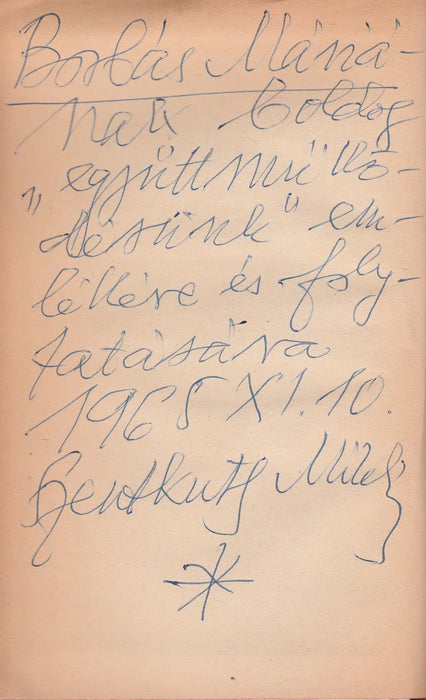 Borbás Máriá-
nak boldog
„együttműkö-
désünk" em-
lékére és foly-
tatására
1965 XI. 10.
Szentkuthy Miklós